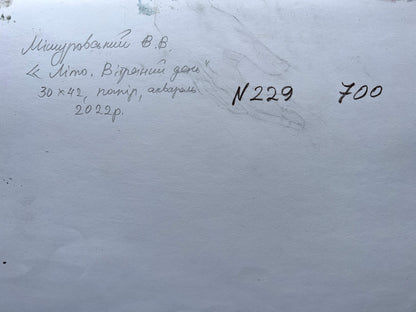 Мішуровський В.В.
« Літо. Вітряний день"
30×42, папір, акварель
2022р.
N229 700